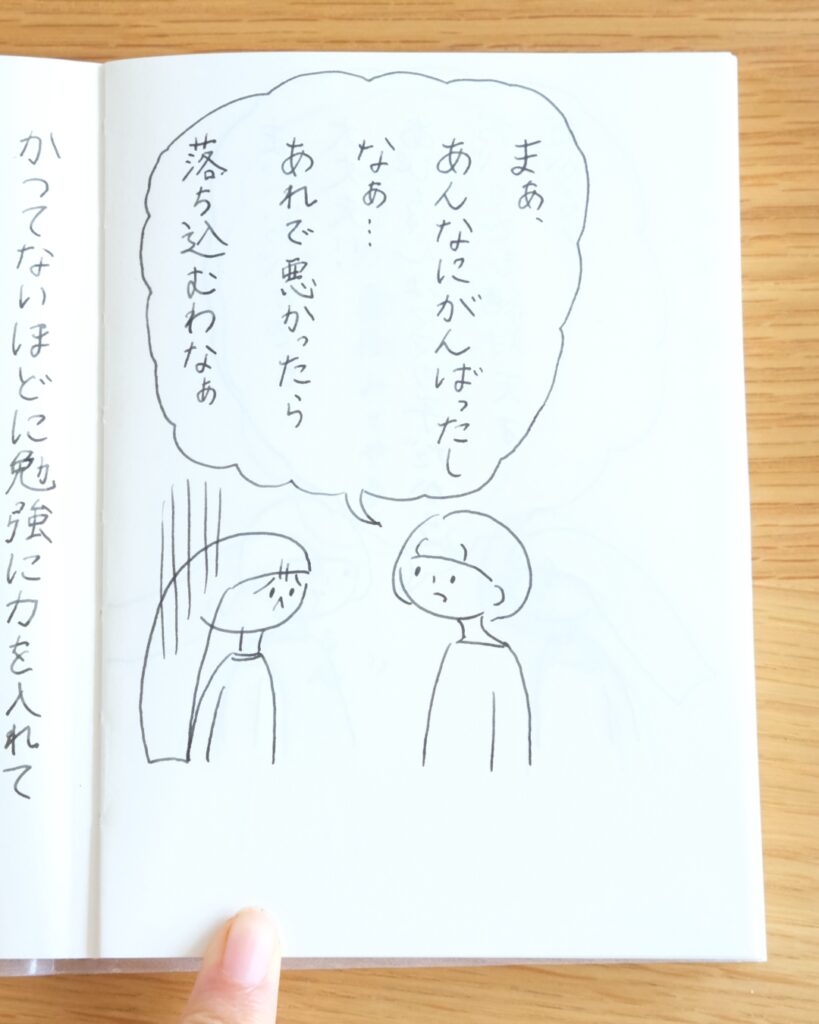 まぁ、
あんなにがんばったし
なぁ…
あれで悪かったら
落ち込むわなぁ
かつてないほどに勉強に力を入れて